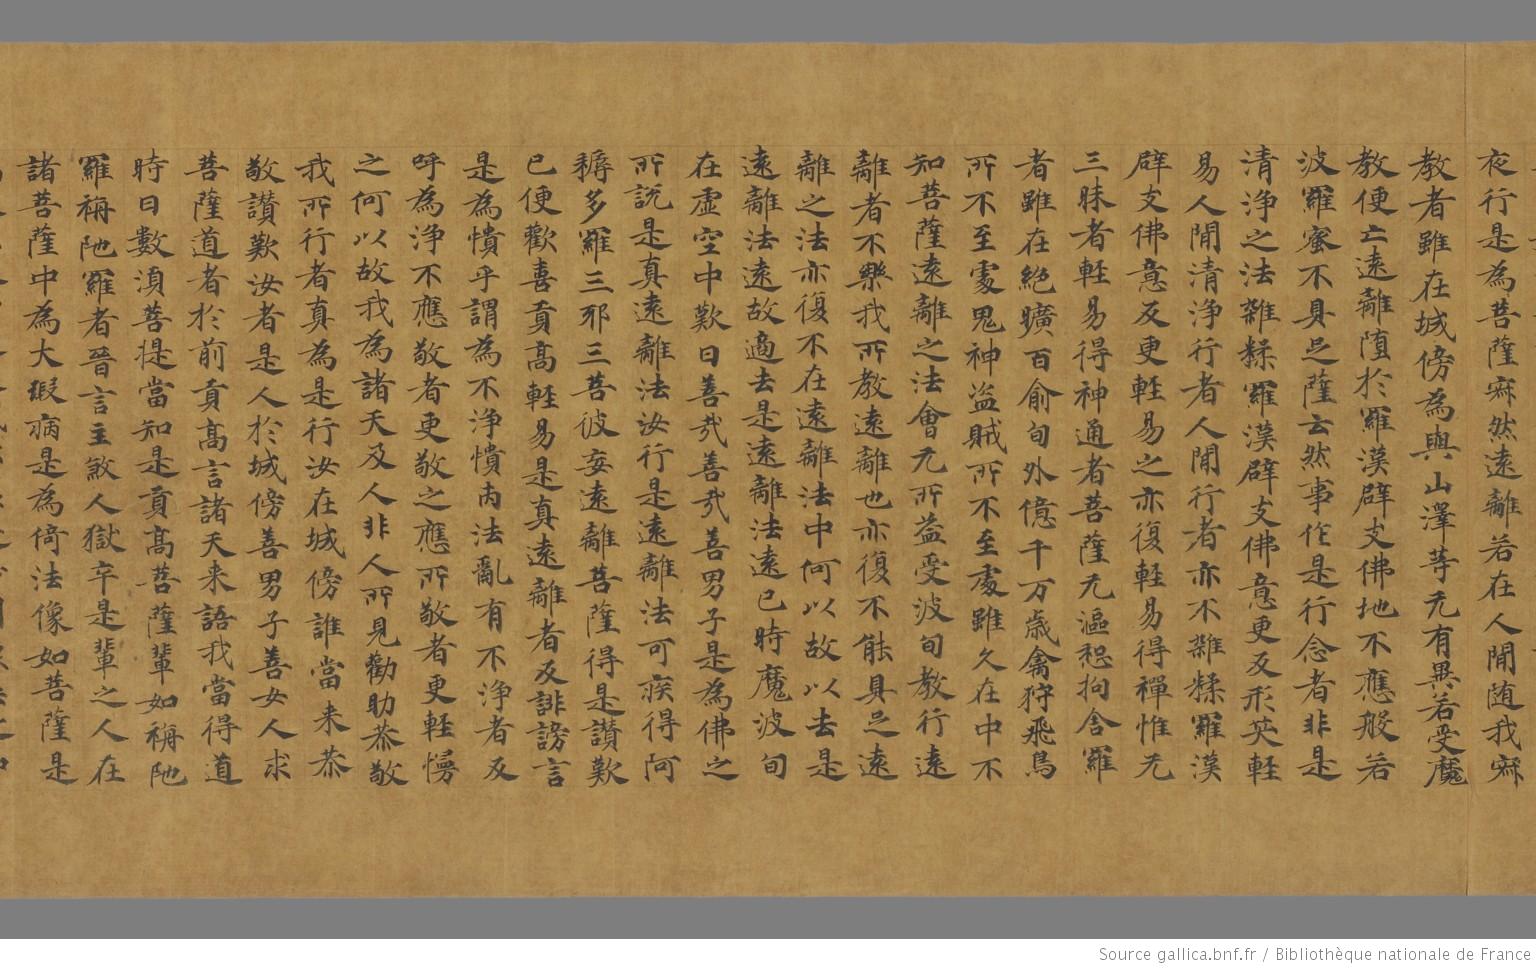 夜行是為菩薩寂然遠離若在人間随我寂
教者雖在城傍為與山澤等无有異若受魔
教便亡遠離堕於羅漢辟支佛地不應般若
波羅蜜不具足薩云然事作是行念者非是
清淨之法雑糅羅漢辟支佛意更及形英軽
易人間清浄行者人間行者亦不雑糅羅漢
辟支佛意及更軽易之亦復軽易得禪惟无
三昧者軽易得神通者菩薩无漚惒拘舍羅
者雖在絶曠百俞旬外億千万歳禽狩飛鳥
所不至處鬼神盗賊所不至處雖久在中不
知菩薩遠離之法會无所益受波旬教行遠
離者不樂我所教遠離也亦復不能具足遠
離之法亦復不在遠離法中何以故以去是
遠離法遠故適去是遠離法遠已時魔波旬
在虚空中歎曰善㢤善㢤善男子是為佛之
所説是真遠離法汝行是遠離法可疾得阿
耨多羅三耶三菩彼妄遠離菩薩得是讃歎
已便歡喜貢高軽易是真遠離者及誹謗言
是為憒乎謂為不浄憒丙法亂有不浄者及
呼為浄不應敬者更敬之應所敬者更軽慢
之何以故我為諸天及人非人所見勸助恭敬
我所行者真為是行汝在城傍誰當来恭
敬讃歎汝者是人於城傍善男子善女人求
菩薩道者於前貢髙言諸天来語我當得道
時曰數湏菩提當知是貢髙菩薩輩如旃陁
羅旃陁羅者晉言主煞人獄卒是輩之人在
諸菩薩中為大瑕病是為倚法像如菩薩是